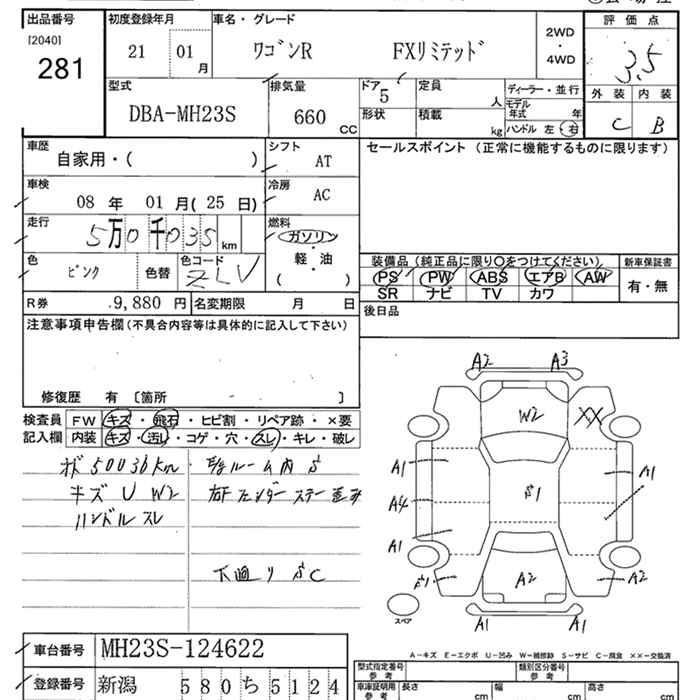 出品番号 初度登録年月 車名・グレード 評価点
[2040]
281
21 01 月 ワゴンR FXリミテッド 2WD ・ 4WD 3.5
型式 排気量 ドア 5 定員 人 ディーラー・並行 外装 内装
DBA-MH23S 660 CC 形状 積載 kg モデル年式 年 ハンドル 左・右 C B
車歴 自家用・( ) シフト AT セールスポイント (正常に機能するものに限ります)
車検 08 年 01 月( 25 日) 冷房 AC
走行 5万0千035 km 燃料 ガソリン・軽・油 ( )
色 ピンク 色替 色コード ZLV 装備品 (純正品に限り○をつけてください) 新車保証書
PS PW ABS エアB AW 有・無
SR ナビ TV カワ
R券 9,880 円 名変期限 月 日 後日品
注意事項申告欄 (不具合内容等は具体的に記入して下さい)
修復歴 有 〔箇所 〕
検査員 FW キズ・飛石・ヒビ割・リペア跡・×要
記入欄 内装 キズ・汚レ・コゲ・穴・スレ・キレ・破レ
キズ U W2
ハンドル スレ
下廻り サビC
A2 A3
W2 XX
A1 A1
A4
A1
A2 A2
A1 A1
スペア
A-キズ E-エクボ U-凹み W-補修跡 S-サビ C-腐食 ××-交換済
車台番号 MH23S-124622
登録番号 新潟 580 ち 5124
型式指定番号 参考 類別区分番号 参考
車庫証明用 参考 長さ cm 幅 cm 高さ cm